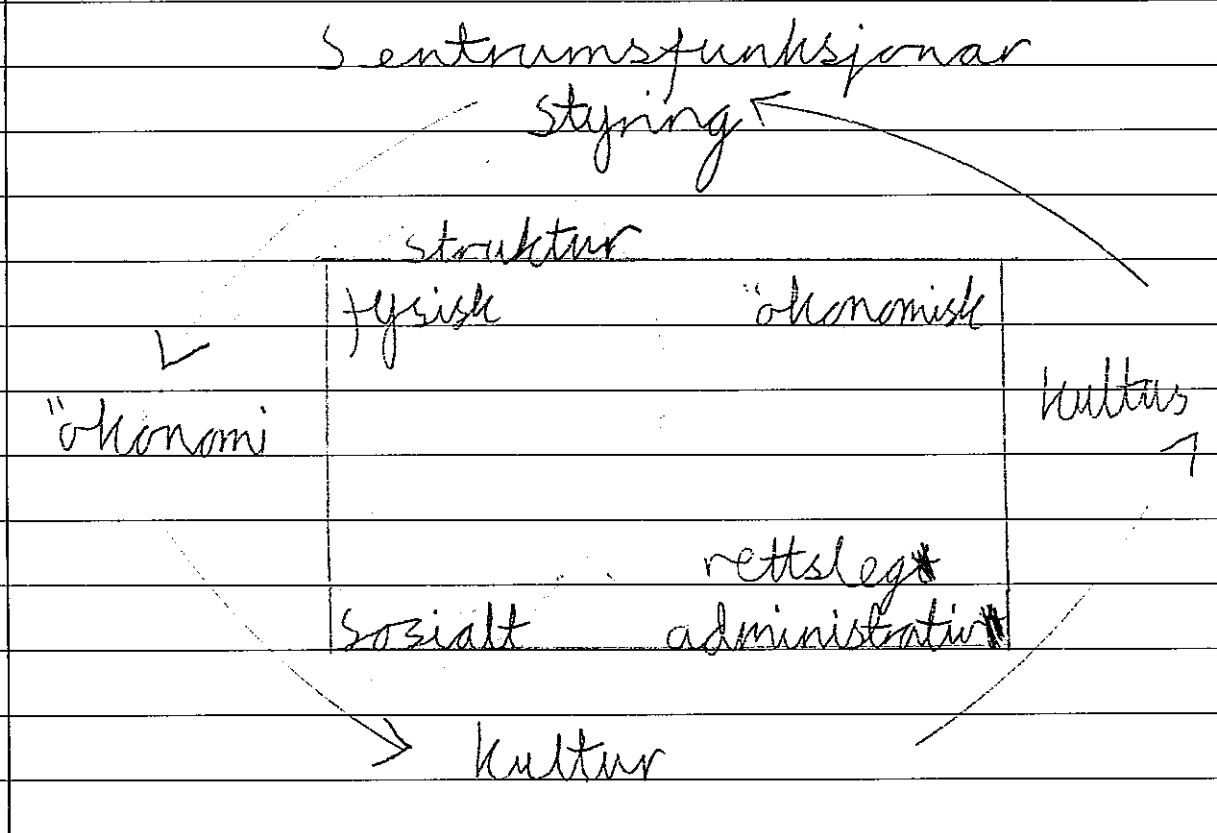 Sentrumsfunksjonar
Styring
struktur
fysisk ökonomisk
ökonomi
kultus
rettsleg
Sosialt administrativ
Kultur